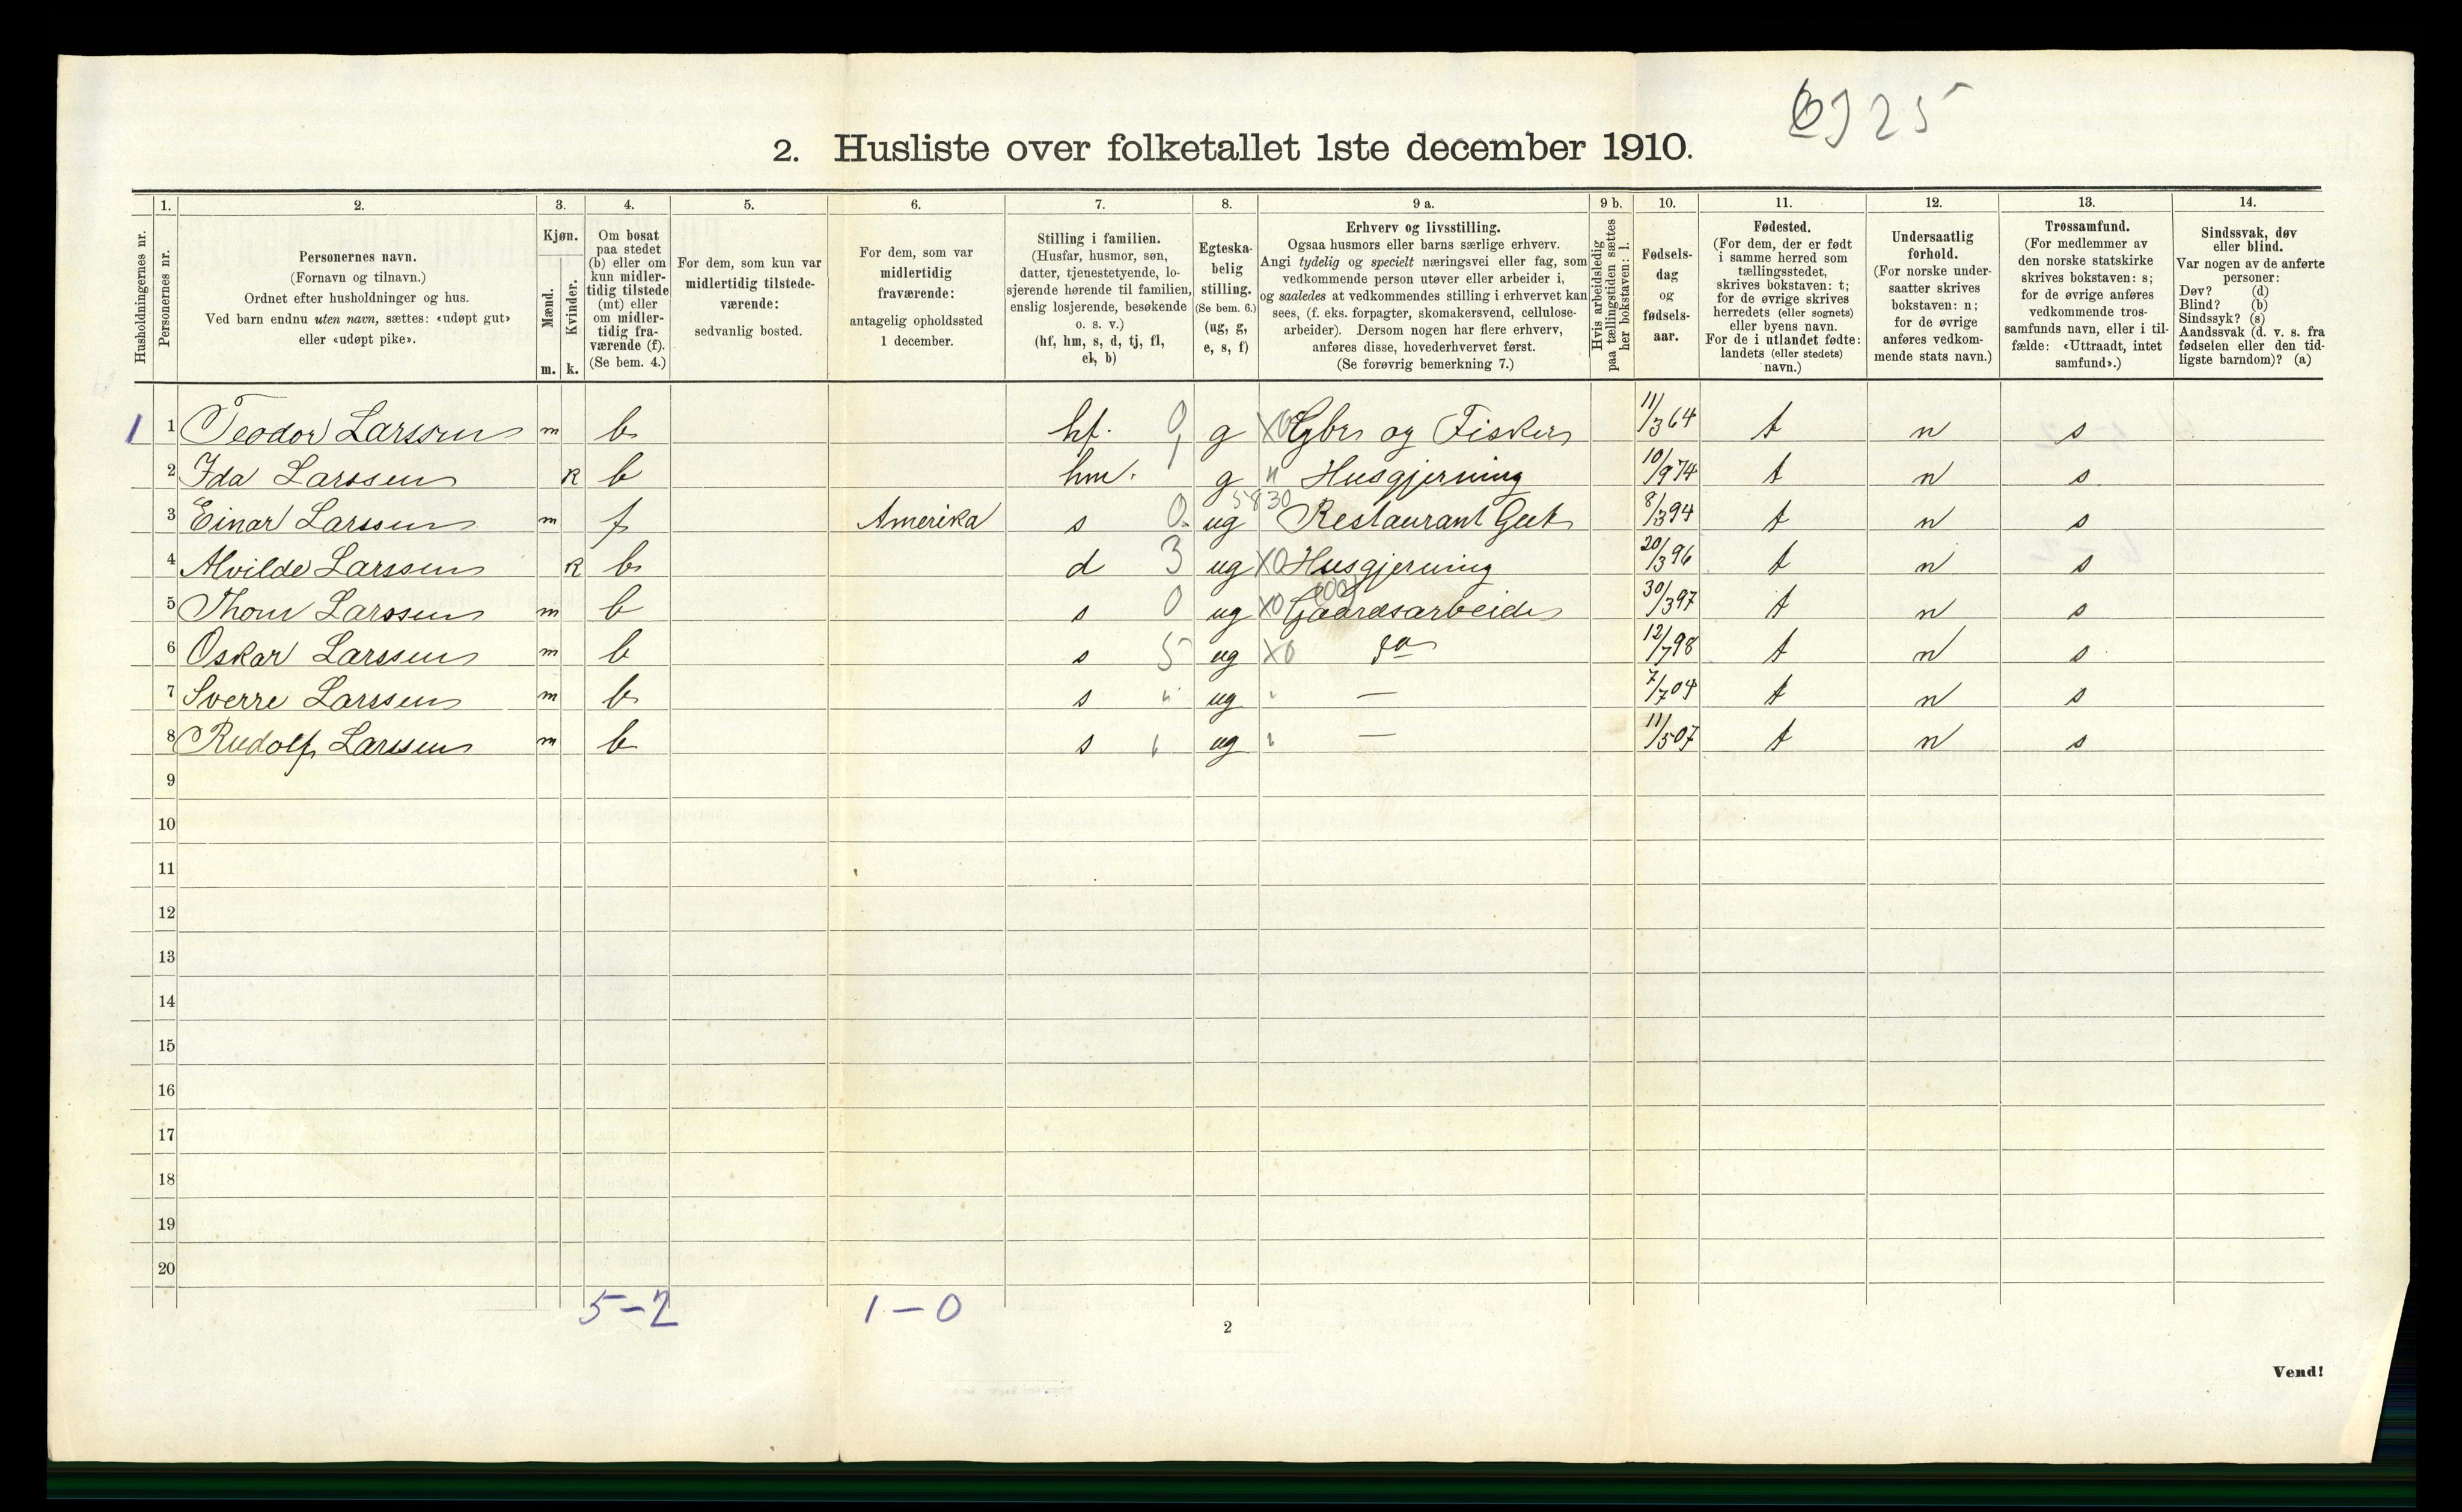 6925
2. Husliste over folketallet 1ste december 1910.
Husholdningernes nr.
1.
Personernes nr.
2.
Personernes navn.
(Fornavn og tilnavn.)
Ordnet efter husholdninger og hus.
Ved barn endnu uten navn, sættes: «udøpt gut»
eller «udøpt pike».
3.
Kjøn.
Mænd.
Kvinder.
m. k.
4.
Om bosat
paa stedet
(b) eller om
kun midler-
tidig tilstede
(mt) eller
om midler-
tidig fra-
værende (f).
(Se bem. 4.)
5.
For dem, som kun var
midlertidig tilstede-
værende:
sedvanlig bosted.
6.
For dem, som var
midlertidig
fraværende:
antagelig opholdssted
1 december.
7.
Stilling i familien.
(Husfar, husmor, søn,
datter, tjenestetyende, lo-
sjerende hørende til familien,
enslig losjerende, besøkende
o. s. v.)
(hf, hm, s, d, tj, fl,
el, b)
8.
Egteska-
belig
stilling.
(Se bem. 6.)
(ug, g,
e, s, f)
9 a.
Erhverv og livsstilling.
Ogsaa husmors eller barns særlige erhverv.
Angi tydelig og specielt næringsvei eller fag, som
vedkommende person utøver eller arbeider i,
og saaledes at vedkommendes stilling i erhvervet kan
sees, (f. eks. forpagter, skomakersvend, cellulose-
arbeider). Dersom nogen har flere erhverv,
anføres disse, hovederhvervet først.
(Se forøvrig bemerkning 7.)
9 b.
Hvis arbeidsledig
paa tællingstiden sættes
her bokstaven: l.
10.
Fødsels-
dag
og
fødsels-
aar.
11.
Fødested.
(For dem, der er født
i samme herred som
tællingsstedet,
skrives bokstaven: t;
for de øvrige skrives
herredets (eller sognets)
eller byens navn.
For de i utlandet fødte:
landets (eller stedets)
navn.)
12.
Undersaatlig
forhold.
(For norske under-
saatter skrives
bokstaven: n;
for de øvrige
anføres vedkom-
mende stats navn.)
13.
Trossamfund.
(For medlemmer av
den norske statskirke
skrives bokstaven: s;
for de øvrige anføres
vedkommende tros-
samfunds navn, eller i til-
fælde: «Uttraadt, intet
samfund».)
14.
Sindssvak, døv
eller blind.
Var nogen av de anførte
personer:
Døv? (d)
Blind? (b)
Sindssyk? (s)
Aandssvak (d. v. s. fra
fødselen eller den tid-
ligste barndom)? (a)
1 1 Teodor Larssen m b hf. 0 g X0 Gbr og Fisker 11/3 64 t n s
2 Ida Larssen k b hm. g " Husgjerning 10/9 74 t n s
3 Einar Larssen m f Amerika s 0 ug 5830 Restaurant Gut 8/3 94 t n s
4 Alvilde Larssen k b d 3 ug X0 Husgjerning 20/3 96 t n s
5 Thom Larssen m b s 0 ug X0 Gaardsarbeide 30/3 97 t n s
6 Oskar Larssen m b s 5 ug X0 do 12/7 98 t n s
7 Sverre Larssen m b s " ug — 7/7 04 t n s
8 Rudolf Larssen m b s ug — 11/5 07 t n s
9
10
11
12
13
14
15
16
17
18
19
20
5-2 1-0
2
Vend!